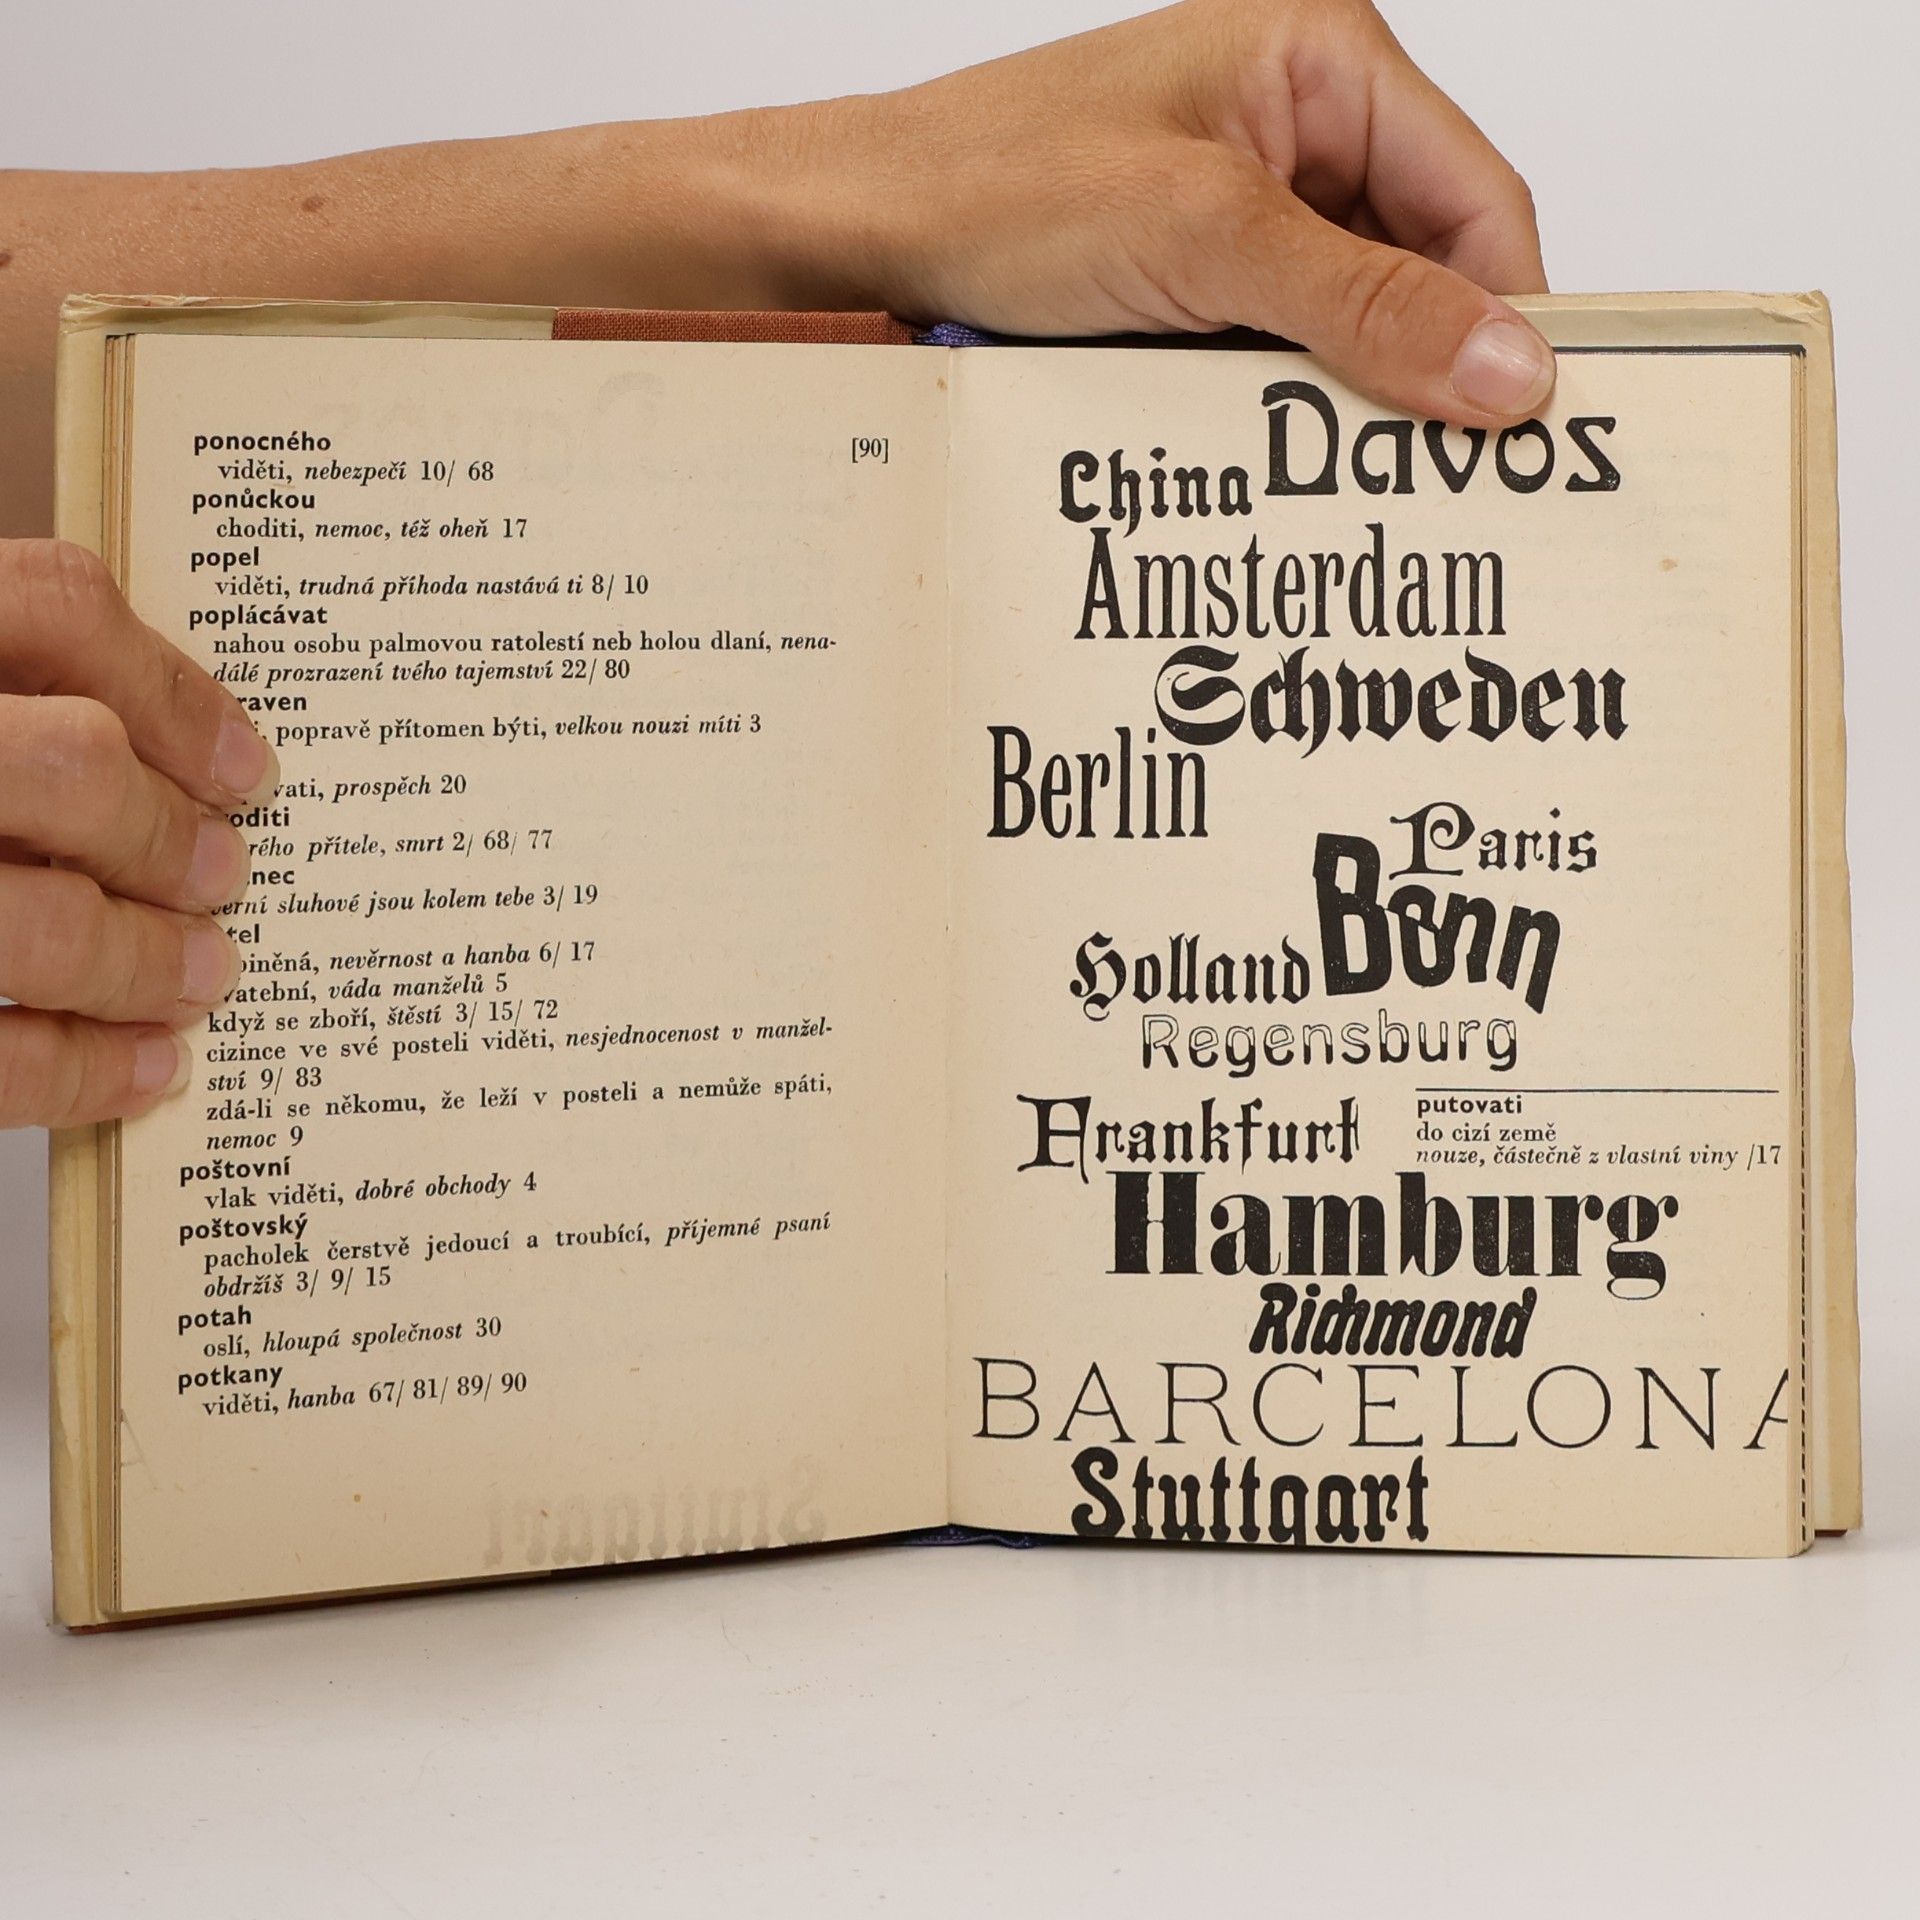 ponocného
[90]
viděti, nebezpečí 10/ 68
ponůckou
choditi, nemoc, též oheň 17
popel
viděti, trudná příhoda nastává ti 8/ 10
poplácávat
nahou osobu palmovou ratolestí neb holou dlaní, nena-
dálé prozrazení tvého tajemství 22/ 80
raven
popravě přítomen býti, velkou nouzi míti 3
vati, prospěch 20
oditi
rého přítele, smrt 2/ 68/ 77
nec
sluhové jsou kolem tebe 3/ 19
tel
piněná, nevěrnost a hanba 6/ 17
vatební, váda manželů 5
když se zboří, štěstí 3/ 15/ 72
cizince ve své posteli viděti, nesjednocenost v manžel-
ství 9/ 83
zdá-li se někomu, že leží v posteli a nemůže spáti,
nemoc 9
poštovní
vlak viděti, dobré obchody 4
poštovský
pacholek čerstvě jedoucí a troubící, příjemné psaní
obdržíš 3/ 9/ 15
potah
oslí, hloupá společnost 30
potkany
viděti, hanba 67/ 81/ 89/ 90
Davos
China
Amsterdam
Schweden
Berlin
Paris
Bonn
Holland
Regensburg
Frankfurt
putovati
do cizí země
nouze, částečně z vlastní viny /17
Hamburg
Richmond
BARCELONA
Stuttgart